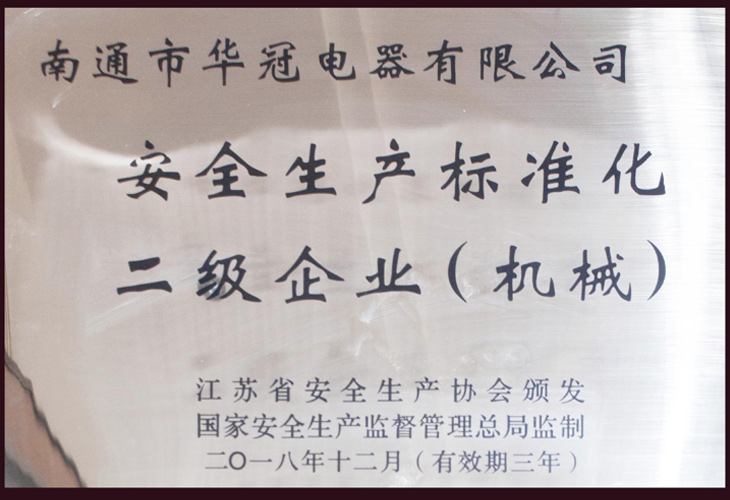 南通市华冠电器有限公司
安全生产标准化
二级企业(机械)
江苏省安全生产协会颁发
国家安全生产监督管理总局监制
二O一八年十二月(有效期三年)